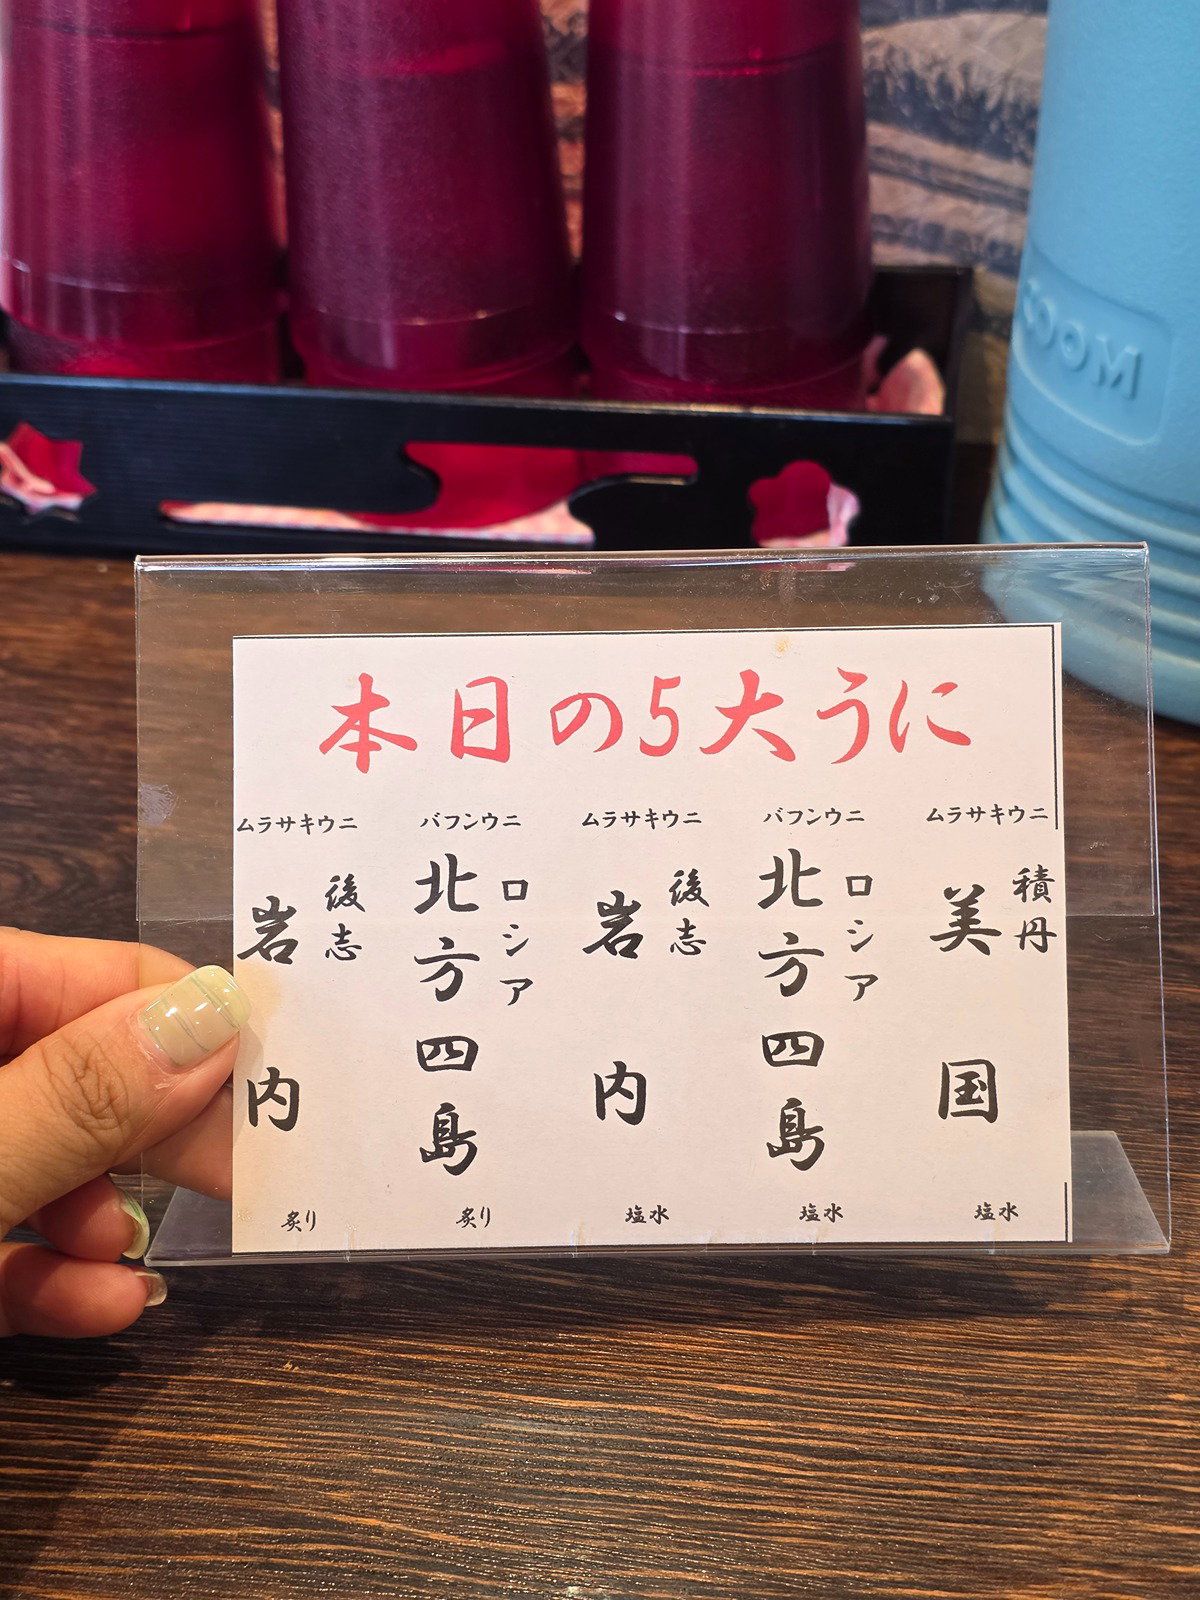 本日の5大うに
ムラサキウニ
積丹
美国
塩水
バフンウニ
ロシア
北方四島
塩水
ムラサキウニ
後志
岩内
塩水
バフンウニ
ロシア
北方四島
炙り
ムラサキウニ
後志
岩内
炙り